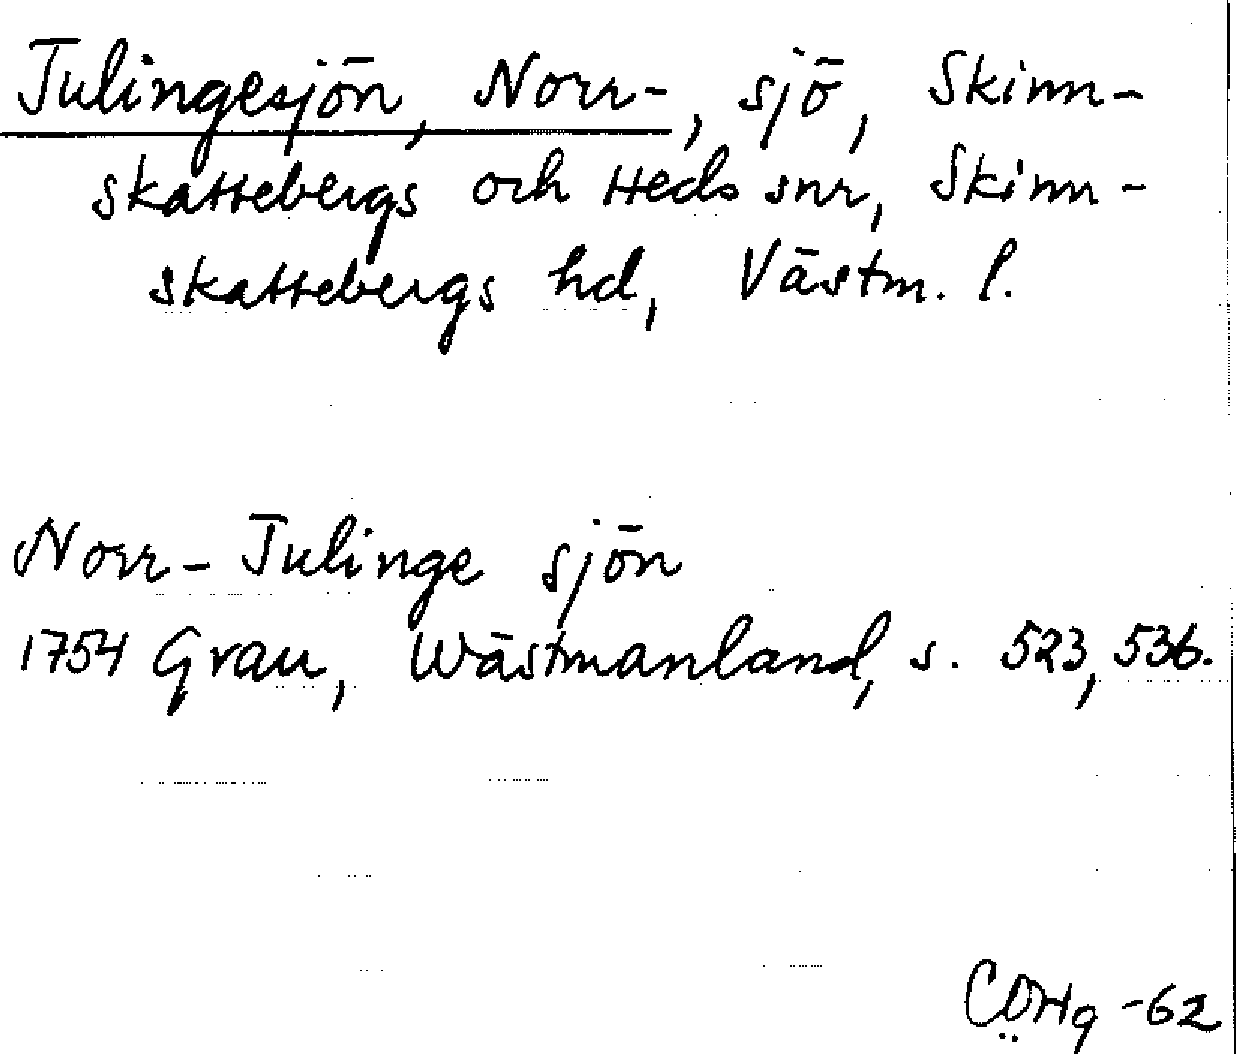 Julingesjön, Norr-, sjö, Skinn-
skattebergs och Heds snr, Skinn-
skattebergs hd, Västm. l.
Norr-Julinge sjön
1754 Grau, Wästmanland, s. 523, 536.
CÖHg -62